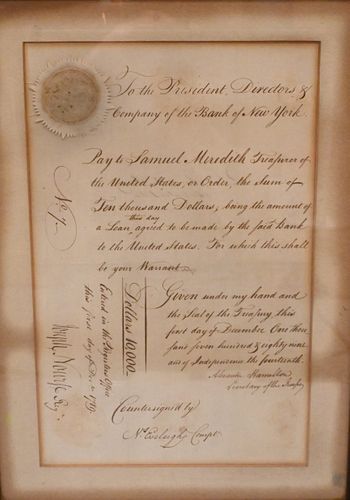 To the President, Directors &
Company of the Bank of New York.
Pay to Samuel Meredith Treasurer of
the United States, or Order, the Sum of
Ten thousand Dollars; being the amount of
this day
a Loan agreed to be made by the said Bank
to the United States. For which this shall
be your Warrant.
Given under my hand and
the Seal of the Treasury, this
first day of December One thou
sand seven hundred & eighty nine
and of Independence the fourteenth.
Alexander Hamilton
Secretary of the Treasury
Dollars 10.000.
Countersigned by
Ns. Eveleigh Compt.
No. 7.
Enter'd in the Register's Office
this first day of Decr. 1789
Joseph Nourse Regr.